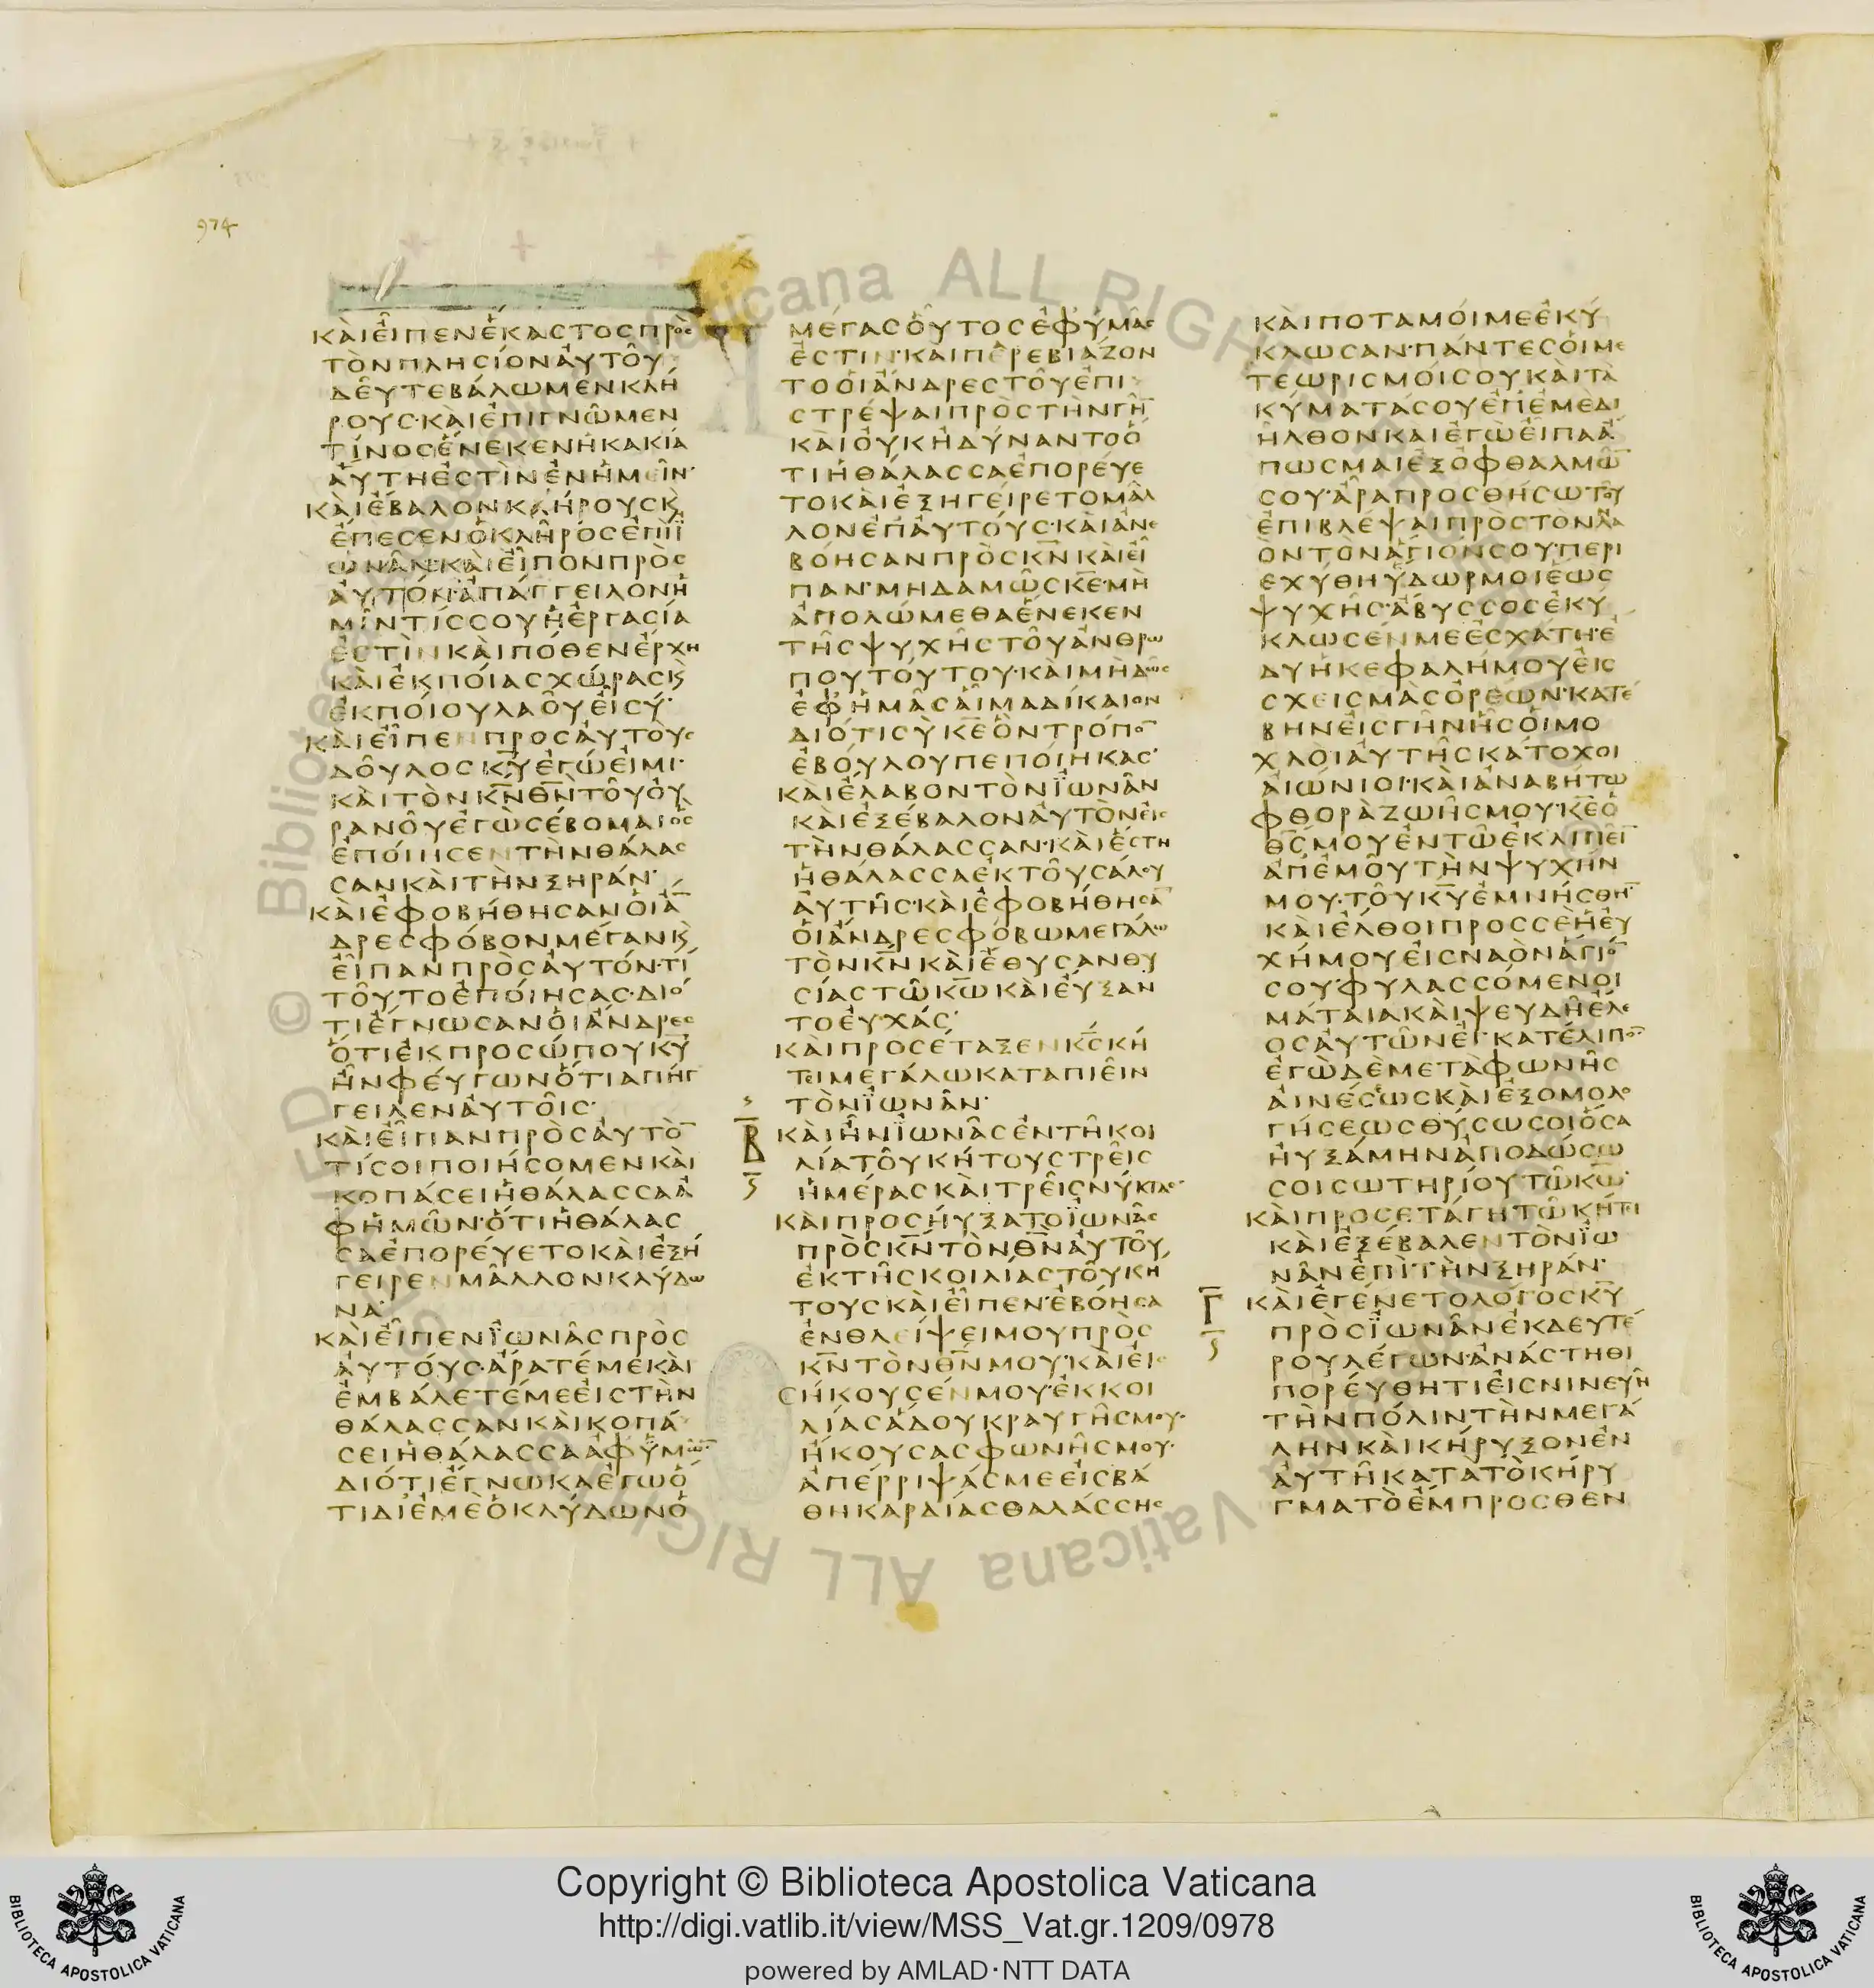 974
ΚΑΙΕΙΠΕΝΕΚΑΣΤΟΣΠΡΟΣ
ΤΟΝΠΛΗΣΙΟΝΑΥΤΟΥ
ΔΕΥΤΕΒΑΛΩΜΕΝΚΛΗ
ΡΟΥΣ·ΚΑΙΕΠΙΓΝΩΜΕΝ
ΤΙΝΟΣΕΝΕΚΕΝΗΚΑΚΙΑ
ΑΥΤΗΕΣΤΙΝΕΝΗΜΕΙΝ·
ΚΑΙΕΒΑΛΟΝΚΛΗΡΟΥΣΚ
ΕΠΕΣΕΝΟΚΛΗΡΟΣΕΠΙΪ
ΩΝΑΝ·ΚΑΙΕΙΠΟΝΠΡΟΣ
ΑΥΤΟΝ·ΑΠΑΓΓΕΙΛΟΝΗ
ΜΙΝΤΙΣΣΟΥΗΕΡΓΑΣΙΑ
ΕΣΤΙΝΚΑΙΠΟΘΕΝΕΡΧΗ
ΚΑΙΕΚΠΟΙΑΣΧΩΡΑΣΚ
ΕΚΠΟΙΟΥΛΑΟΥΕΙΣΥ·
ΚΑΙΕΙΠΕΝΠΡΟΣΑΥΤΟΥΣ
ΔΟΥΛΟΣΚΥ̅ΕΓΩΕΙΜΙ·
ΚΑΙΤΟΝΚ̅Ν̅Θ̅Ν̅ΤΟΥΟΥ
ΡΑΝΟΥΕΓΩΣΕΒΟΜΑΙΟΣ
ΕΠΟΙΗΣΕΝΤΗΝΘΑΛΑΣ
ΣΑΝΚΑΙΤΗΝΞΗΡΑΝ·
ΚΑΙΕΦΟΒΗΘΗΣΑΝΟΙΑ̅
ΔΡΕΣΦΟΒΟΝΜΕΓΑΝΚ
ΕΙΠΑΝΠΡΟΣΑΥΤΟΝ·ΤΙ
ΤΟΥΤΟΕΠΟΙΗΣΑΣ·ΔΙΟ
ΤΙΕΓΝΩΣΑΝΟΙΑΝΔΡΕΣ
ΟΤΙΕΚΠΡΟΣΩΠΟΥΚΥ̅
ΗΝΦΕΥΓΩΝΟΤΙΑΠΗΓ
ΓΕΙΛΕΝΑΥΤΟΙΣ·
ΚΑΙΕΙΠΑΝΠΡΟΣΑΥΤΟ̅
ΤΙΣΟΙΠΟΙΗΣΟΜΕΝΚΑΙ
ΚΟΠΑΣΕΙΗΘΑΛΑΣΣΑΑ
ΦΗΜΩΝ·ΟΤΙΗΘΑΛΑΣ
ΣΑΕΠΟΡΕΥΕΤΟΚΑΙΕΞΗ
ΓΕΙΡΕΝΜΑΛΛΟΝΚΛΥΔΩ
ΝΑ·
ΚΑΙΕΙΠΕΝΪΩΝΑΣΠΡΟΣ
ΑΥΤΟΥΣ·ΑΡΑΤΕΜΕΚΑΙ
ΕΜΒΑΛΕΤΕΜΕΕΙΣΤΗΝ
ΘΑΛΑΣΣΑΝΚΑΙΚΟΠΑ
ΣΕΙΗΘΑΛΑΣΣΑΑΦΥΜΩ̅
ΔΙΟΤΙΕΓΝΩΚΑΕΓΩΟ
ΤΙΔΙΕΜΕΟΚΛΥΔΩΝΟ
ΜΕΓΑΣΟΥΤΟΣΕΦΥΜΑΣ
ΕΣΤΙΝ·ΚΑΙΠΑΡΕΒΙΑΖΟΝ
ΤΟΟΙΑΝΔΡΕΣΤΟΥΕΠΙ
ΣΤΡΕΨΑΙΠΡΟΣΤΗΝΓΗ̅
ΚΑΙΟΥΚΗΔΥΝΑΝΤΟΟ
ΤΙΗΘΑΛΑΣΣΑΕΠΟΡΕΥΕ
ΤΟΚΑΙΕΞΗΓΕΙΡΕΤΟΜΑΛ
ΛΟΝΕΠΑΥΤΟΥΣ·ΚΑΙΑΝΕ
ΒΟΗΣΑΝΠΡΟΣΚ̅Ν̅ΚΑΙΕΙ
ΠΑΝ·ΜΗΔΑΜΩΣΚ̅Ε̅·ΜΗ
ΑΠΟΛΩΜΕΘΑΕΝΕΚΕΝ
ΤΗΣΨΥΧΗΣΤΟΥΑΝΘΡΩ
ΠΟΥΤΟΥΤΟΥ·ΚΑΙΜΗΔΩΣ
ΕΦΗΜΑΣΑΙΜΑΔΙΚΑΙΟΝ
ΔΙΟΤΙΣΥΚ̅Ε̅ΟΝΤΡΟΠΟ̅
ΕΒΟΥΛΟΥΠΕΠΟΙΗΚΑΣ·
ΚΑΙΕΛΑΒΟΝΤΟΝΪΩΝΑΝ
ΚΑΙΕΞΕΒΑΛΟΝΑΥΤΟΝΕΙΣ
ΤΗΝΘΑΛΑΣΣΑΝ·ΚΑΙΕΣΤΗ
ΗΘΑΛΑΣΣΑΕΚΤΟΥΣΑΛΟΥ
ΑΥΤΗΣ·ΚΑΙΕΦΟΒΗΘΗΣΑ̅
ΟΙΑΝΔΡΕΣΦΟΒΩΜΕΓΑΛΩ
ΤΟΝΚ̅Ν̅ΚΑΙΕΘΥΣΑΝΘΥ
ΣΙΑΣΤΩΚ̅Ω̅ΚΑΙΕΥΞΑΝ
ΤΟΕΥΧΑΣ·
ΚΑΙΠΡΟΣΕΤΑΞΕΝΚ̅Σ̅ΚΗ
ΤΕΙΜΕΓΑΛΩΚΑΤΑΠΙΕΙΝ
ΤΟΝΪΩΝΑΝ·
Β̅
ΚΑΙΗΝΪΩΝΑΣΕΝΤΗΚΟΙ
ΛΙΑΤΟΥΚΗΤΟΥΣΤΡΕΙΣ
ΗΜΕΡΑΣΚΑΙΤΡΕΙΣΝΥΚΤΑΣ·
ΚΑΙΠΡΟΣΗΥΞΑΤΟΪΩΝΑΣ
ΠΡΟΣΚ̅Ν̅ΤΟΝΘ̅Ν̅ΑΥΤΟΥ
ΕΚΤΗΣΚΟΙΛΙΑΣΤΟΥΚΗ
ΤΟΥΣΚΑΙΕΙΠΕΝ·ΕΒΟΗΣΑ
ΕΝΘΛΕΙΨΕΙΜΟΥΠΡΟΣ
Κ̅Ν̅ΤΟΝΘ̅Ν̅ΜΟΥ·ΚΑΙΕΙΣ
ΗΚΟΥΣΕΝΜΟΥ·ΕΚΚΟΙ
ΛΙΑΣΑΔΟΥΚΡΑΥΓΗΣΜΟΥ·
ΗΚΟΥΣΑΣΦΩΝΗΣΜΟΥ·
ΑΠΕΡΡΙΨΑΣΜΕΕΙΣΒΑ
ΘΗΚΑΡΔΙΑΣΘΑΛΑΣΣΗΣ
ΚΑΙΠΟΤΑΜΟΙΜΕΕΚΥ
ΚΛΩΣΑΝ·ΠΑΝΤΕΣΟΙΜΕ
ΤΕΩΡΙΣΜΟΙΣΟΥΚΑΙΤΑ
ΚΥΜΑΤΑΣΟΥΕΠΕΜΕΔΙ
ΗΛΘΟΝΚΑΙΕΓΩΕΙΠΑΑ
ΠΩΣΜΑΙΕΞΟΦΘΑΛΜΩ̅
ΣΟΥ·ΑΡΑΠΡΟΣΘΗΣΩΤΟΥ
ΕΠΙΒΛΕΨΑΙΠΡΟΣΤΟΝΝΑ
ΟΝΤΟΝΑΓΙΟΝΣΟΥ·ΠΕΡΙ
ΕΧΥΘΗΥΔΩΡΜΟΙΕΩΣ
ΨΥΧΗΣ·ΑΒΥΣΣΟΣΕΚΥ
ΚΛΩΣΕΝΜΕΕΣΧΑΤΗ·Ε
ΔΥΗΚΕΦΑΛΗΜΟΥΕΙΣ
ΣΧΕΙΣΜΑΣΟΡΕΩΝ·ΚΑΤΕ
ΒΗΝΕΙΣΓΗΝΗΣΟΙΜΟ
ΧΛΟΙΑΥΤΗΣΚΑΤΟΧΟΙ
ΑΙΩΝΙΟΙ·ΚΑΙΑΝΑΒΗΤΩ
ΦΘΟΡΑΖΩΗΣΜΟΥ·Κ̅Ε̅Ο
Θ̅Σ̅ΜΟΥΕΝΤΩΕΚΛΙΠΕΙ̅
ΑΠΕΜΟΥΤΗΝΨΥΧΗΝ
ΜΟΥ·ΤΟΥΚ̅Υ̅ΕΜΝΗΣΘΗ̅
ΚΑΙΕΛΘΟΙΠΡΟΣΣΕΗΕΥ
ΧΗΜΟΥΕΙΣΝΑΟΝΑΓΙΟ̅
ΣΟΥ·ΦΥΛΑΣΣΟΜΕΝΟΙ
ΜΑΤΑΙΑΚΑΙΨΕΥΔΗΕΛΕ
ΟΣΑΥΤΩΝΕΓΚΑΤΕΛΙΠΟ̅
ΕΓΩΔΕΜΕΤΑΦΩΝΗΣ
ΑΙΝΕΣΕΩΣΚΑΙΕΞΟΜΟΛΟ
ΓΗΣΕΩΣΘΥΣΩΣΟΙΟΣΑ
ΗΥΞΑΜΗΝΑΠΟΔΩΣΩ
ΣΟΙΣΩΤΗΡΙΟΥΤΩΚ̅Ω̅·
ΚΑΙΠΡΟΣΕΤΑΓΗΤΩΚΗΤΕΙ
ΚΑΙΕΞΕΒΑΛΕΝΤΟΝΪΩ
ΝΑΝΕΠΙΤΗΝΞΗΡΑΝ·
Γ̅
ΚΑΙΕΓΕΝΕΤΟΛΟΓΟΣΚ̅Υ̅
ΠΡΟΣΪΩΝΑΝΕΚΔΕΥΤΕ
ΡΟΥΛΕΓΩΝ·ΑΝΑΣΤΗΘΙ
ΠΟΡΕΥΘΗΤΙΕΙΣΝΙΝΕΥΗ
ΤΗΝΠΟΛΙΝΤΗΝΜΕΓΑ
ΛΗΝΚΑΙΚΗΡΥΞΟΝΕΝ
ΑΥΤΗΚΑΤΑΤΟΚΗΡΥ
ΓΜΑΤΟΕΜΠΡΟΣΘΕΝ
Copyright © Biblioteca Apostolica Vaticana
http://digi.vatlib.it/view/MSS_Vat.gr.1209/0978
powered by AMLAD·NTT DATA
BIBLIOTECA APOSTOLICA VATICANA
BIBLIOTECA APOSTOLICA VATICANA